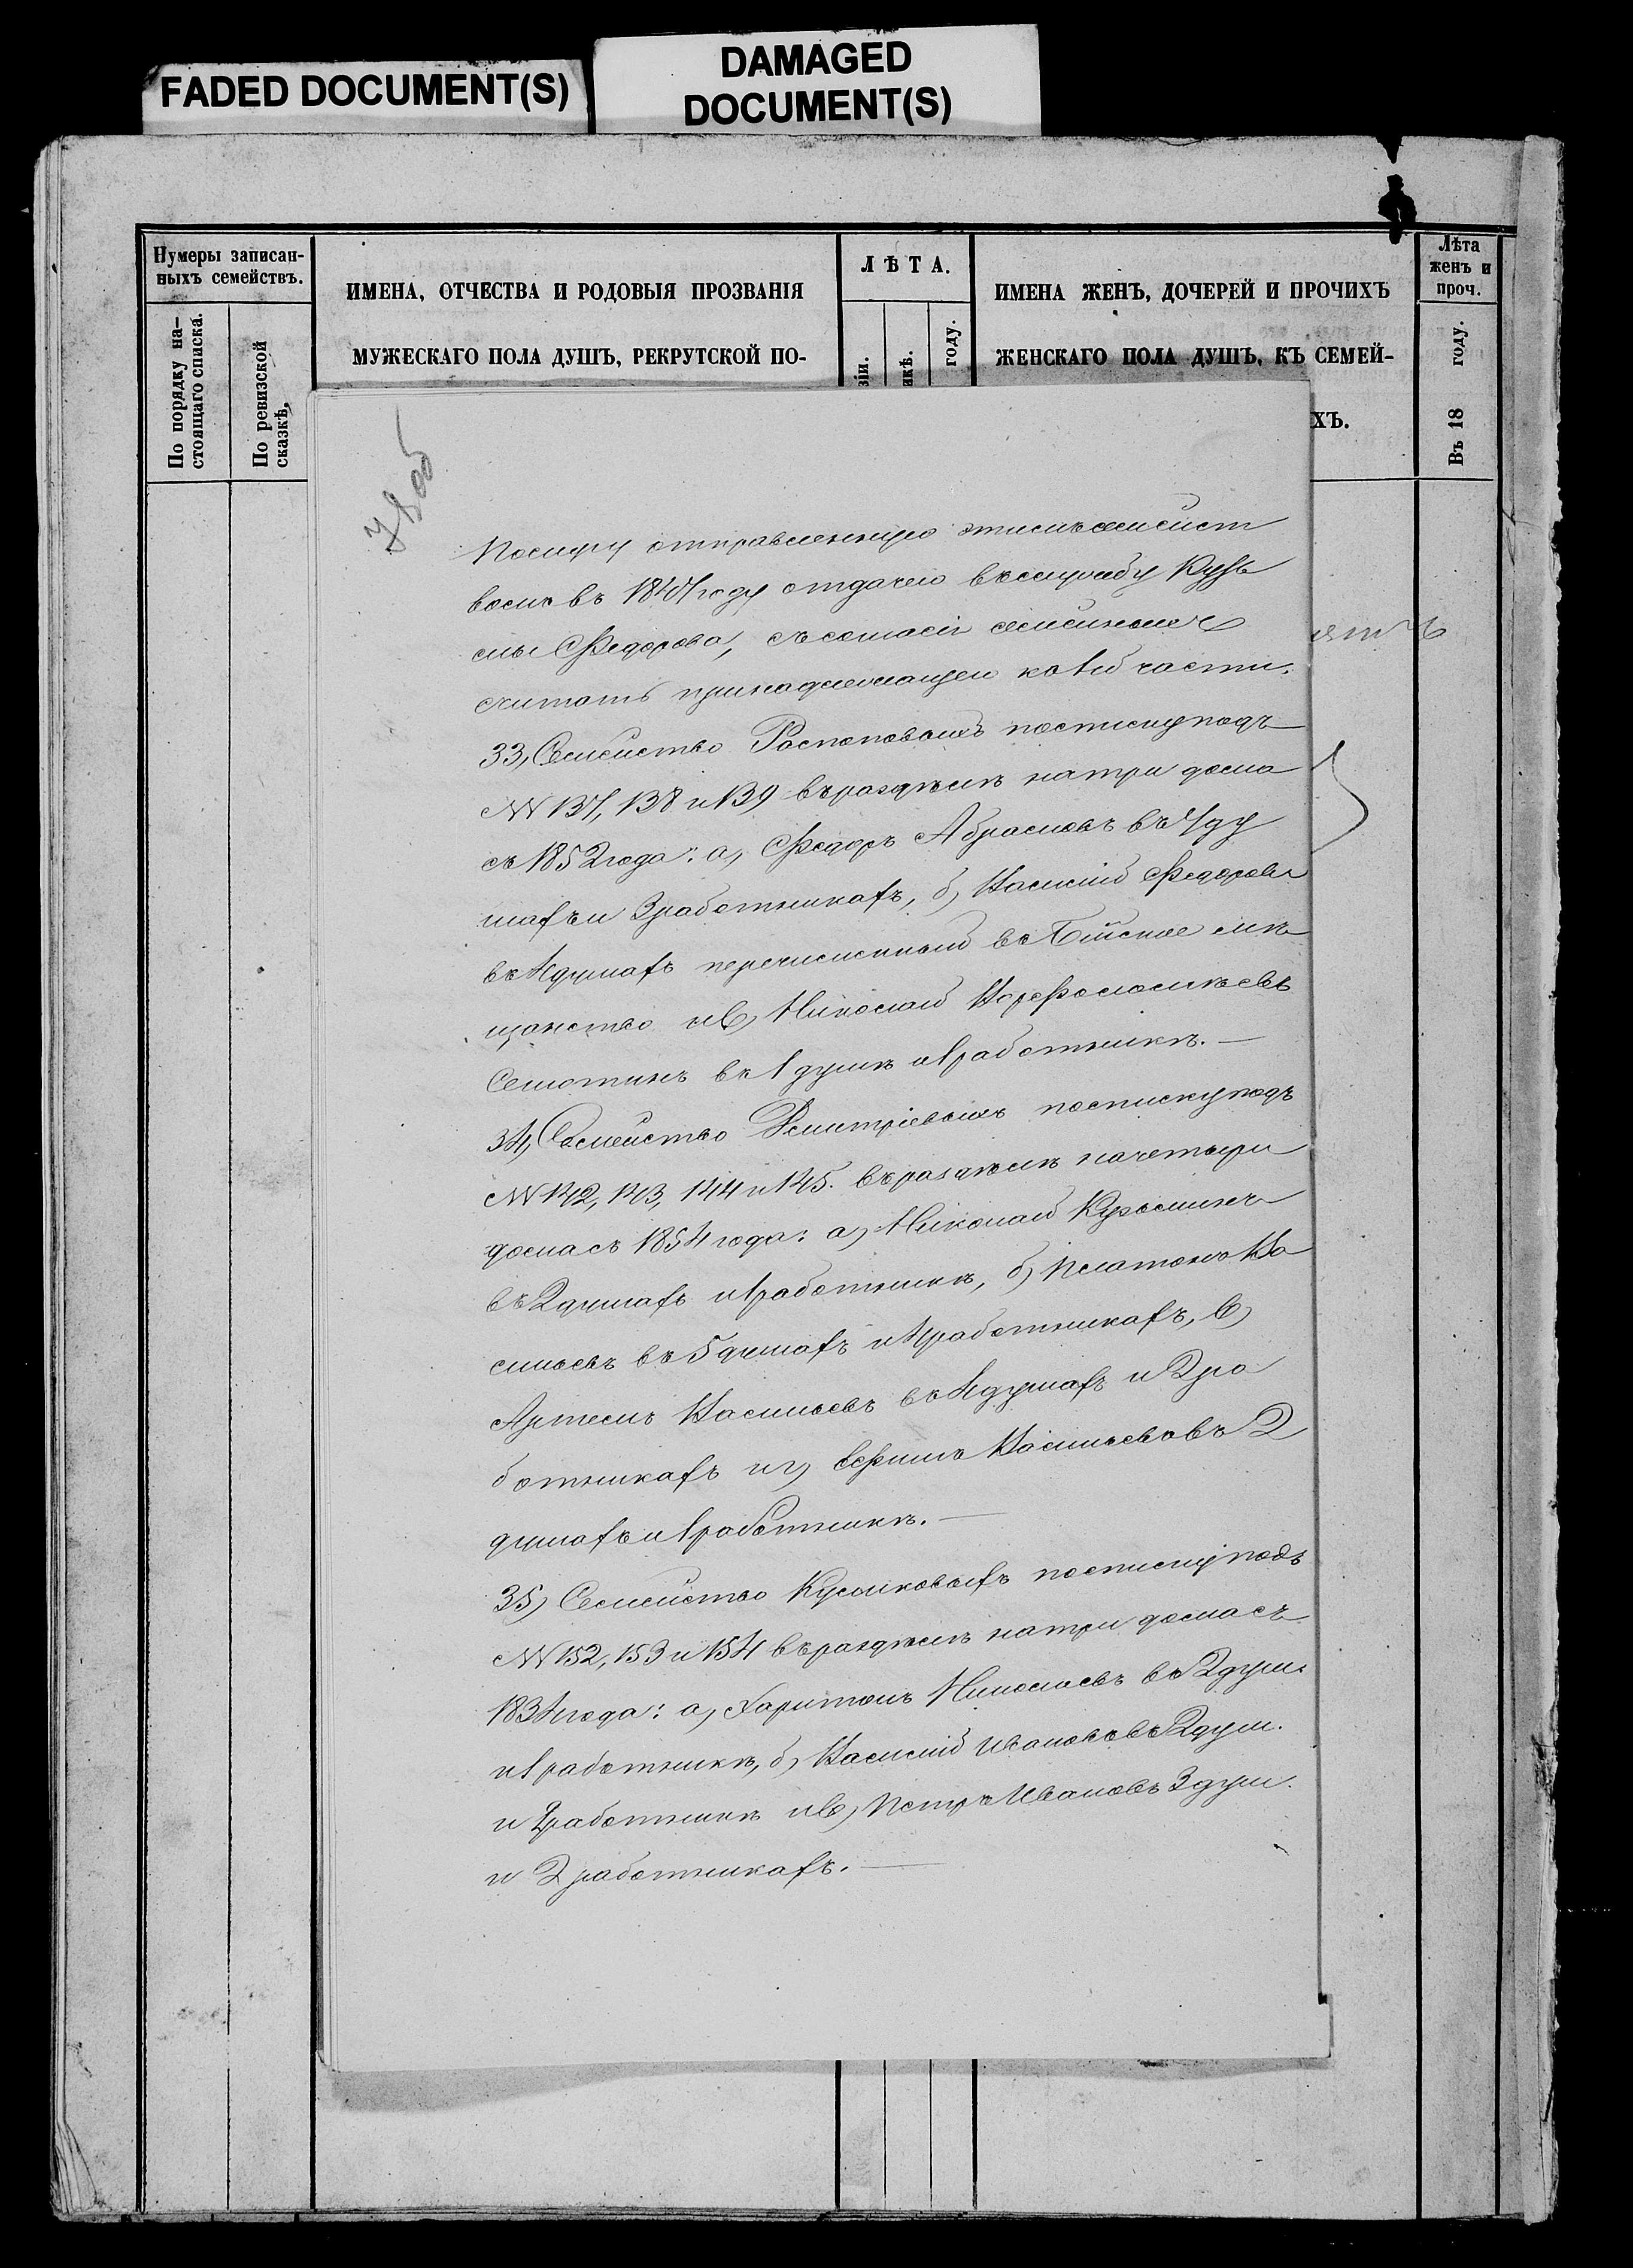 FADED DOCUMENT(S)
DAMAGED
DOCUMENT(S)
Нумеры записан-
ныхъ семействъ.
По порядку на-
стоящаго списка.
По ревизской
сказкѣ.
ИМЕНА, ОТЧЕСТВА И РОДОВЫЯ ПРОЗВАНІЯ
МУЖЕСКАГО ПОЛА ДУШЪ, РЕКРУТСКОЙ ПО-
ЛѢТА.
зіи.
икѣ.
году.
ИМЕНА ЖЕНЪ, ДОЧЕРЕЙ И ПРОЧИХЪ
ЖЕНСКАГО ПОЛА ДУШЪ, КЪ СЕМЕЙ-
ХЪ.
Лѣта
женъ и
проч.
Въ 18 году.
78 об
Послугу отправленную этимъ семейст
вомъ въ 1847 году отдачею въ службу Кузь
мы Федорова, съ согласія семьиномъ
считать принадлежащею ко 1й части.
33, Семейство Распоповыхъ по списку подъ
№№ 137, 138 и 139 въ раздѣлѣ на три дома
съ 1852 года: а, Федоръ Абрамовъ въ 4 ду
шахъ и 3 работникахъ, б, Василій Федоровъ
въ 4 душахъ перечисленный въ Бійское мѣ
щанство и в, Николай Варфоломѣевъ
въ 1 душѣ и 1 работникѣ. —
34, Семейство Дмитріевыхъ по списку подъ
№№ 142, 143, 144 и 145. въ раздѣлѣ на четыри
дома съ 1854 года: а, Николай Кузьминъ
въ 2 душахъ и 1 работникѣ, б, Платонъ Ва
сильевъ въ 5 душахъ и 4 работникахъ, в,
Артемъ Васильевъ въ 4 душахъ и 2 ра
ботникахъ и г, Ефимъ Васильевъ въ 2
душахъ и 1 работникѣ. —
35, Семейство Куликовыхъ по списку подъ
№№ 152, 153 и 154 въ раздѣлѣ на три дома съ
1834 года: а, Харитонъ Николаевъ въ 2 душ.
и 1 работникѣ, б, Василій Ивановъ въ 2 душ.
и 2 работникѣ и в, Петръ Ивановъ 3 душ.
и 2 работникахъ. —